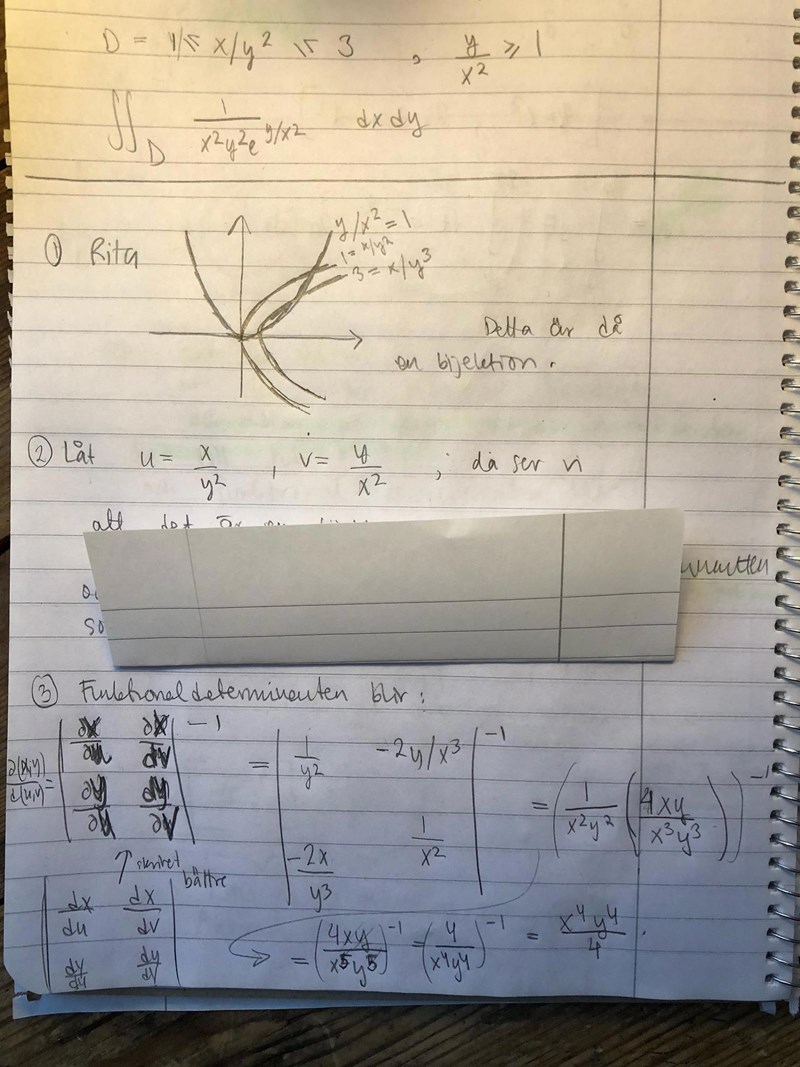 D = 1 ≤ x/y² ≤ 3 , y/x² ≥ 1
∬_D 1/(x²y²e^(y/x²)) dx dy
① Rita
y/x² = 1
1 = x/y²
3 = x/y³
Detta är då
en bijektion.
② Låt u = x/y² , v = y/x² ; då ser vi
att det är
so
③ Funktionaldeterminenten blir:
∂(x,y)/∂(u,v) = |∂x/∂u ∂x/∂v; ∂y/∂u ∂y/∂v|⁻¹ = |1/y² -2y/x³; -2x/y³ 1/x²|⁻¹ = (1/(x²y²) (4xy/(x³y³)))⁻¹
↑ skrivet bättre
|dx/du dx/dv; dy/du dy/dv|
= (4xy/(x⁵y⁵))⁻¹ = (4/(x⁴y⁴))⁻¹ = x⁴y⁴/4 .